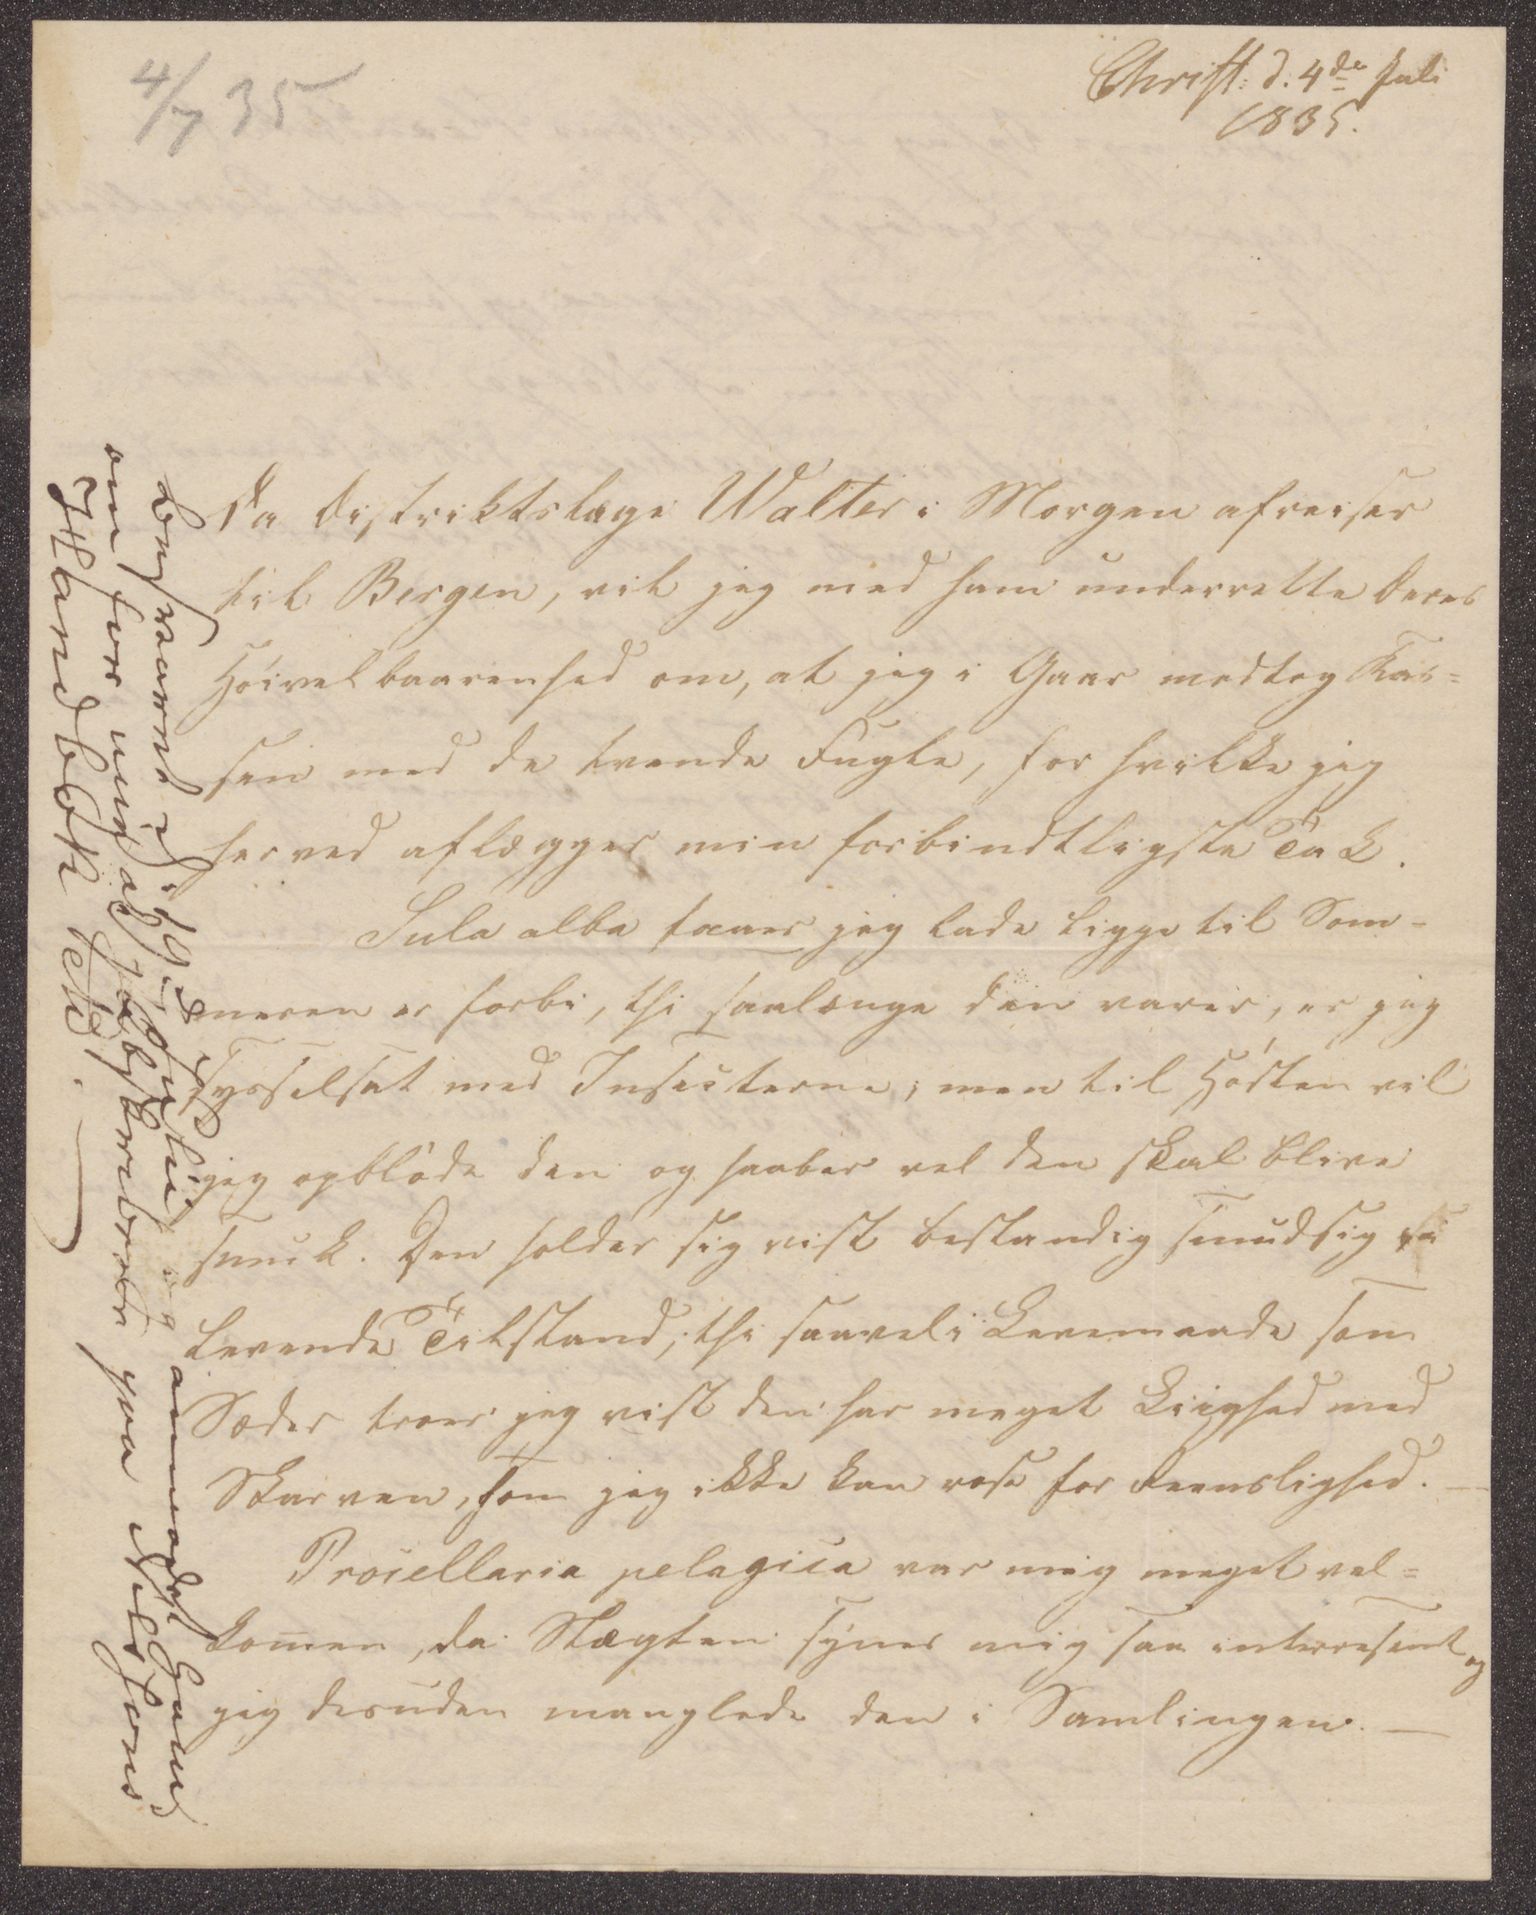 4/7 35
Christ: d. 4de Juli
1835.
Da Distriktslæge Walter i Morgen afreiser
til Bergen, vil jeg med ham underrette Deres
Høivelbaarenhed om, at jeg i Gaar modtog Kas=
sen med de tvende Fugle, for hvilke jeg
herved aflægger min forbindtligste Tak.
Sula alba faaer jeg lade ligge til Som-
meren er forbi, thi saalænge den varer, er jeg
sysselsat med Insecterne; men til Høsten vil
jeg opbløde den og haaber vel den skal blive
smuk. Den holder sig vist bestandig smudsig i
levende Tilstand, thi saavel i Levemaade som
Sæder troer jeg vist den har meget Liighed med
Skarven, som jeg ikke kan rose for Reenslighed. —
Procellaria pelagica var mig meget vel=
kommen, da Slægten synes mig saa interresant og
jeg desuden manglede den i Samlingen. —
besvaret d. 19de Julii og anmodet ham
om for mig at subskribere paa Nilssons
Haandbok